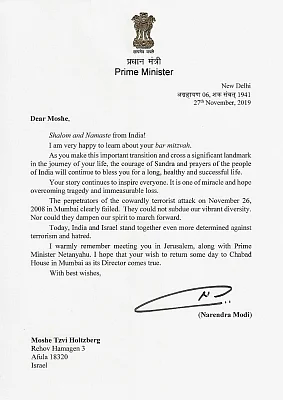 सत्यमेव जयते
प्रधान मंत्री
Prime Minister
New Delhi
अग्रहायण 06, शक संवत् 1941
27th November, 2019
Dear Moshe,
Shalom and Namaste from India!
I am very happy to learn about your bar mitzvah.
As you make this important transition and cross a significant landmark
in the journey of your life, the courage of Sandra and prayers of the people
of India will continue to bless you for a long, healthy and successful life.
Your story continues to inspire everyone. It is one of miracle and hope
overcoming tragedy and immeasurable loss.
The perpetrators of the cowardly terrorist attack on November 26,
2008 in Mumbai clearly failed. They could not subdue our vibrant diversity.
Nor could they dampen our spirit to march forward.
Today, India and Israel stand together even more determined against
terrorism and hatred.
I warmly remember meeting you in Jerusalem, along with Prime
Minister Netanyahu. I hope that your wish to return some day to Chabad
House in Mumbai as its Director comes true.
With best wishes,
(Narendra Modi)
Moshe Tzvi Holtzberg
Rehov Hamagen 3
Afula 18320
Israel